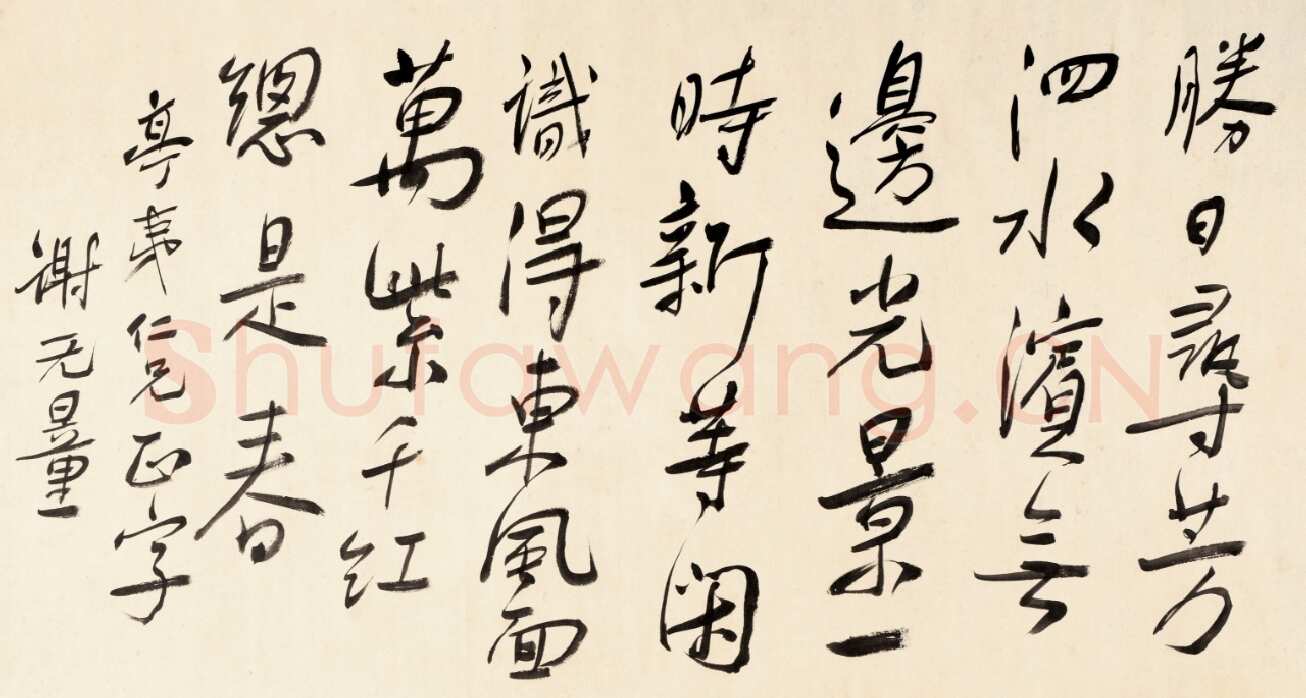 勝日尋芳
泗水濱無
邊光景一
時新等閑
識得東風面
萬紫千红
總是春
亭夷仁兄正字
谢无量
Shufawang.CN